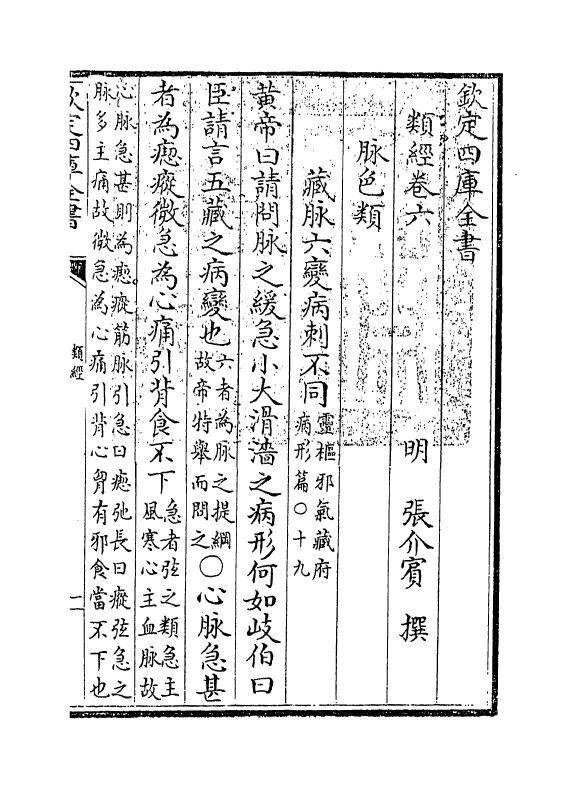 欽定四庫全書
類經卷六
明 張介賓 撰
脉色類
藏脉六變病刺不同靈樞邪氣藏府病形篇○十九
黄帝曰請問脉之緩急小大滑濇之病形何如岐伯曰
臣請言五藏之病變也六者為脉之提綱故帝特舉而問之○心脉急甚
者為瘛瘲微急為心痛引背食不下急者弦之類急主風寒心主血脉故
心脉急甚則為瘛瘲筋脉引急曰瘛弛長曰瘲弦急之
脉多主痛故微急為心痛引背心胷有邪食當不下也
欽定四庫全書
類經